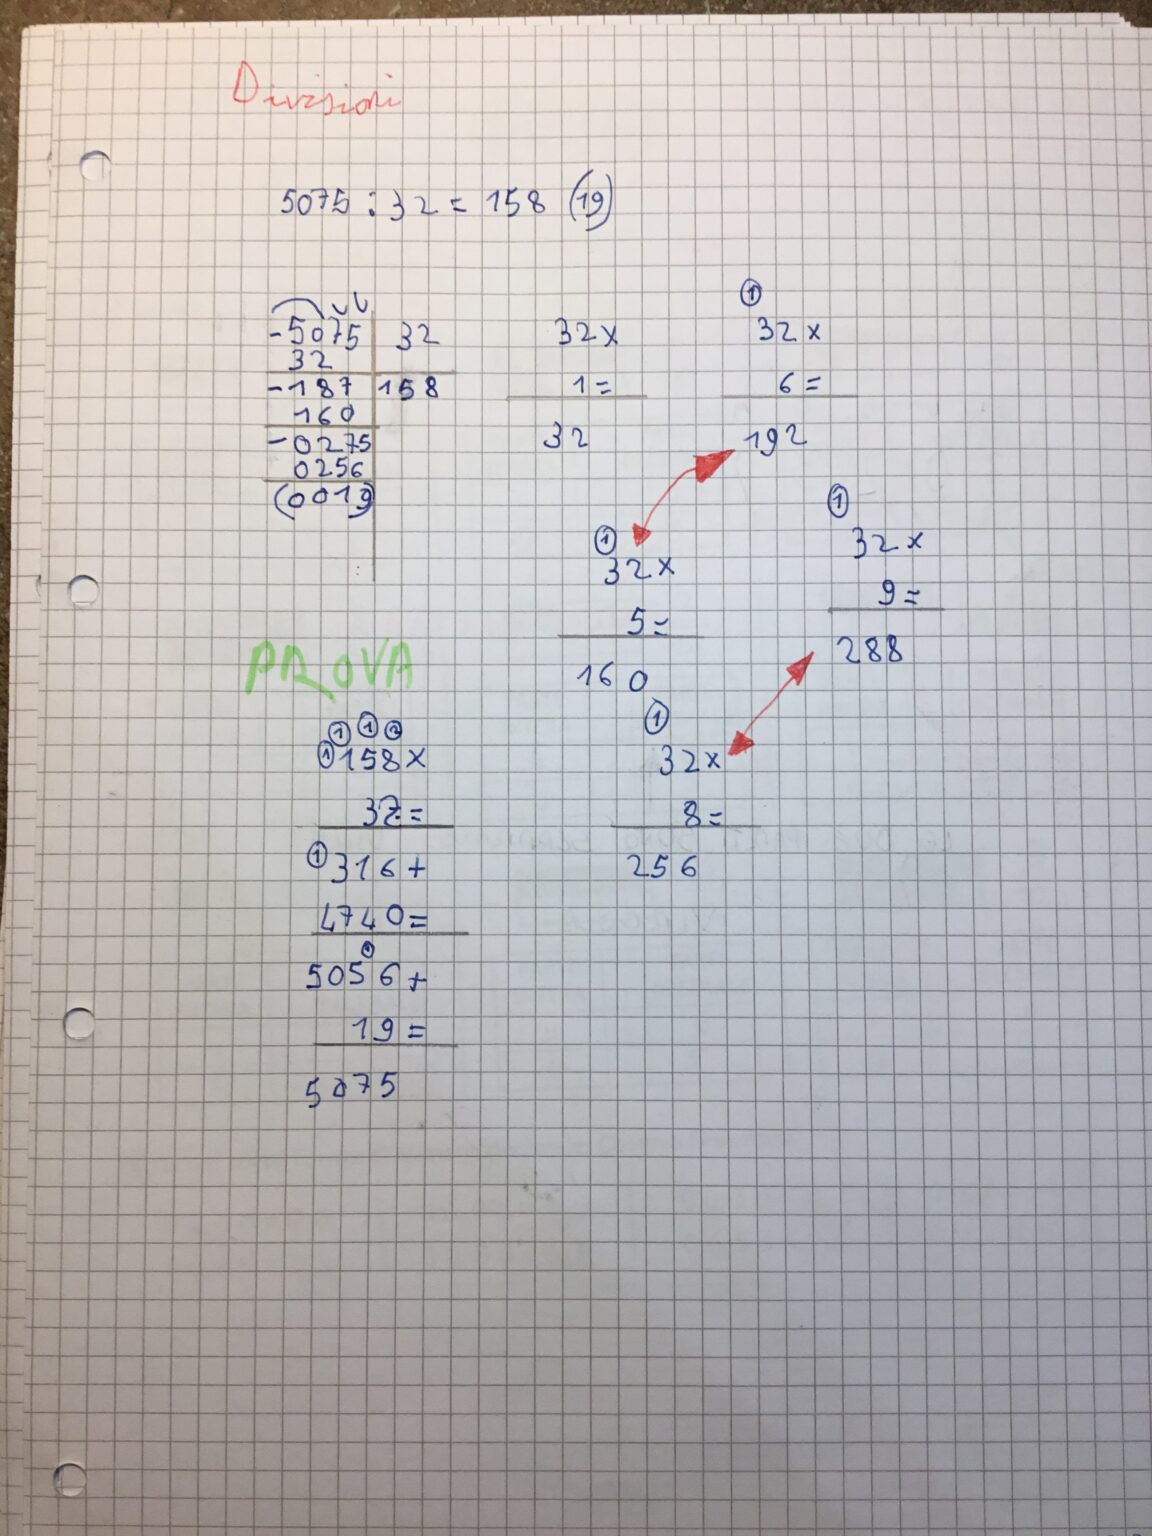 Divisioni
5075 : 32 = 158 (19)
-5075 32
32
-187 158
160
-0275
0256
(0019)
32x
1=
32
1
32x
6=
192
1
32x
5=
160
1
32x
9=
288
1
32x
8=
256
PROVA
1 1
1 158x
32=
1 316+
4740=
5056+
19=
5075